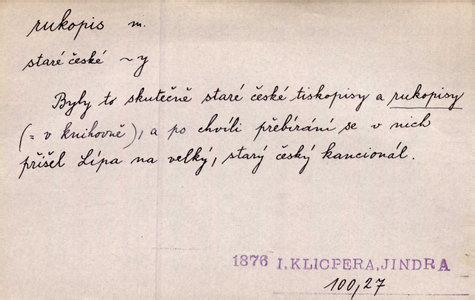 rukopis m.
staré české ~y
Byly to skutečně staré české tiskopisy a rukopisy
(= v knihovně), a po chvíli přebírání se v nich
přišel Lípa na velký, starý český kancionál.
1876 I.KLICPERA,JINDRA
100,27